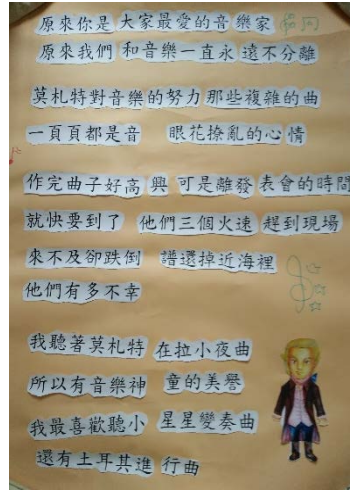 原來你是大家最愛的音樂家
原來我們和音樂一直永遠不分離
莫札特對音樂的努力那些複雜的曲
一頁頁都是音 眼花撩亂的心情
作完曲子好高興 可是離發表會的時間
就快要到了 他們三個火速趕到現場
來不及卻跌倒 譜還掉近海裡
他們有多不幸
我聽著莫札特在拉小夜曲
所以有音樂神童的美譽
我最喜歡聽小星星變奏曲
還有土耳其進行曲